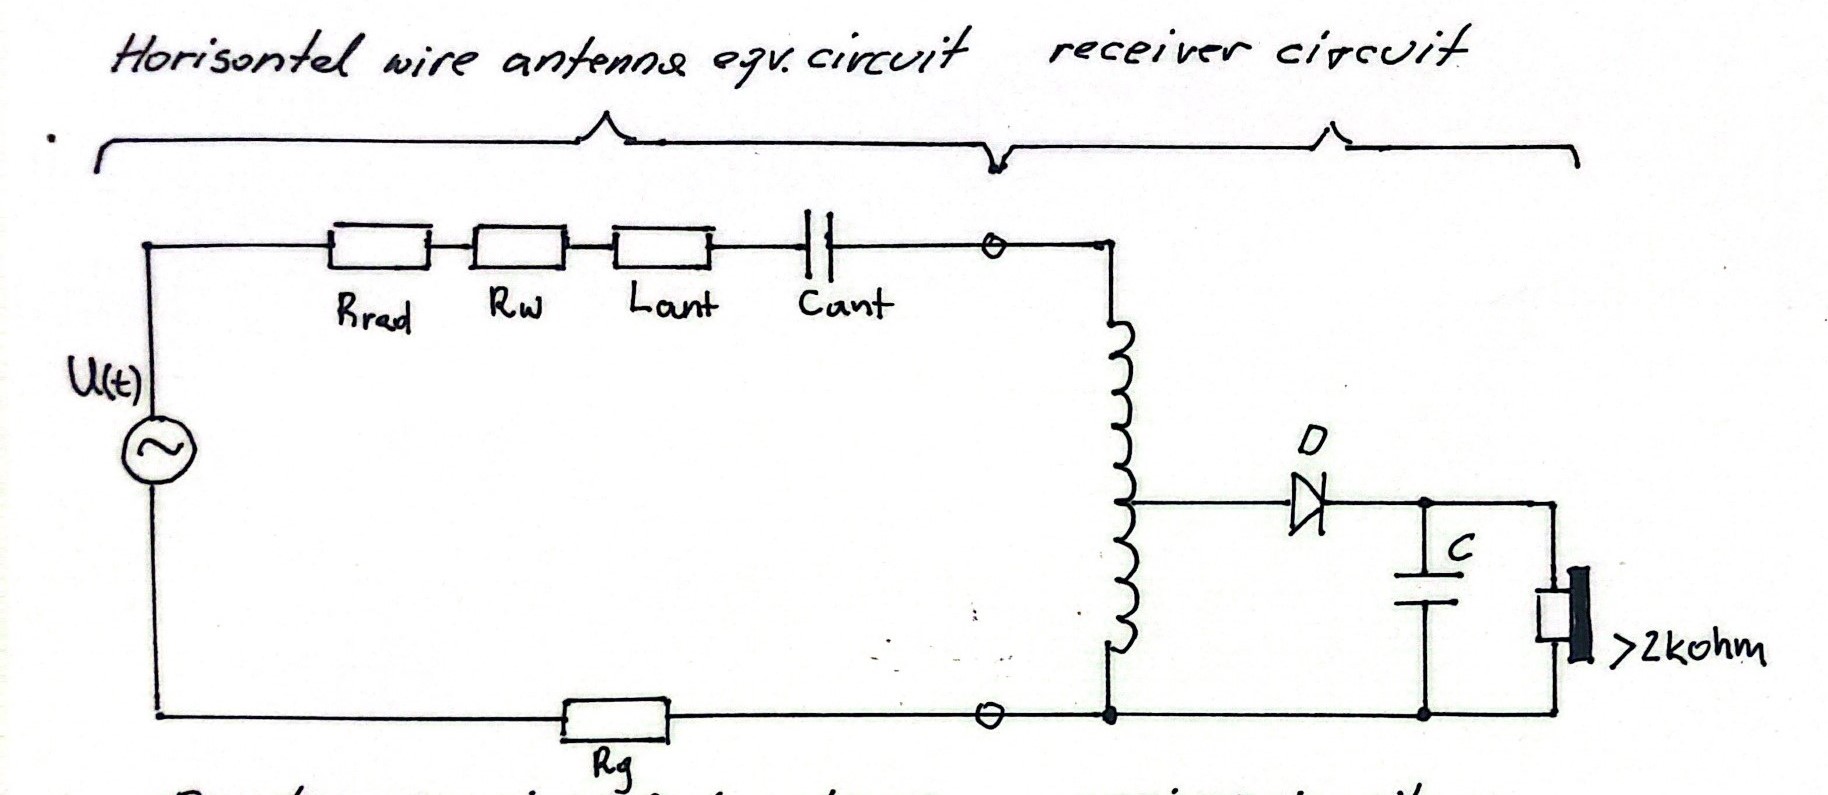 Horisontel wire antenna eqv. circuit receiver circuit
Rrad Rw Lant Cant
U(t)
D
C
>2kohm
Rg